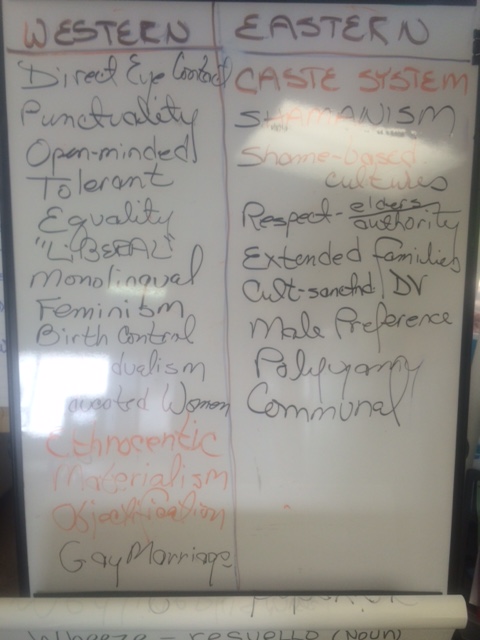 WESTERN
Direct Eye Contact
Punctuality
Open-minded
Tolerant
Equality
"LIBERAL"
Monolingual
Feminism
Birth Control
dualism
ucated Women
Ethnocentic
Materialism
Objectification
Gay Marriage
EASTERN
CASTE SYSTEM
SHAMANISM
Shame-based
cultures
Respect - elders
authority
Extended Families
Cult-sanctnd DV
Male Preference
Polygamy
Communal
Wheeze - resuello (noun)